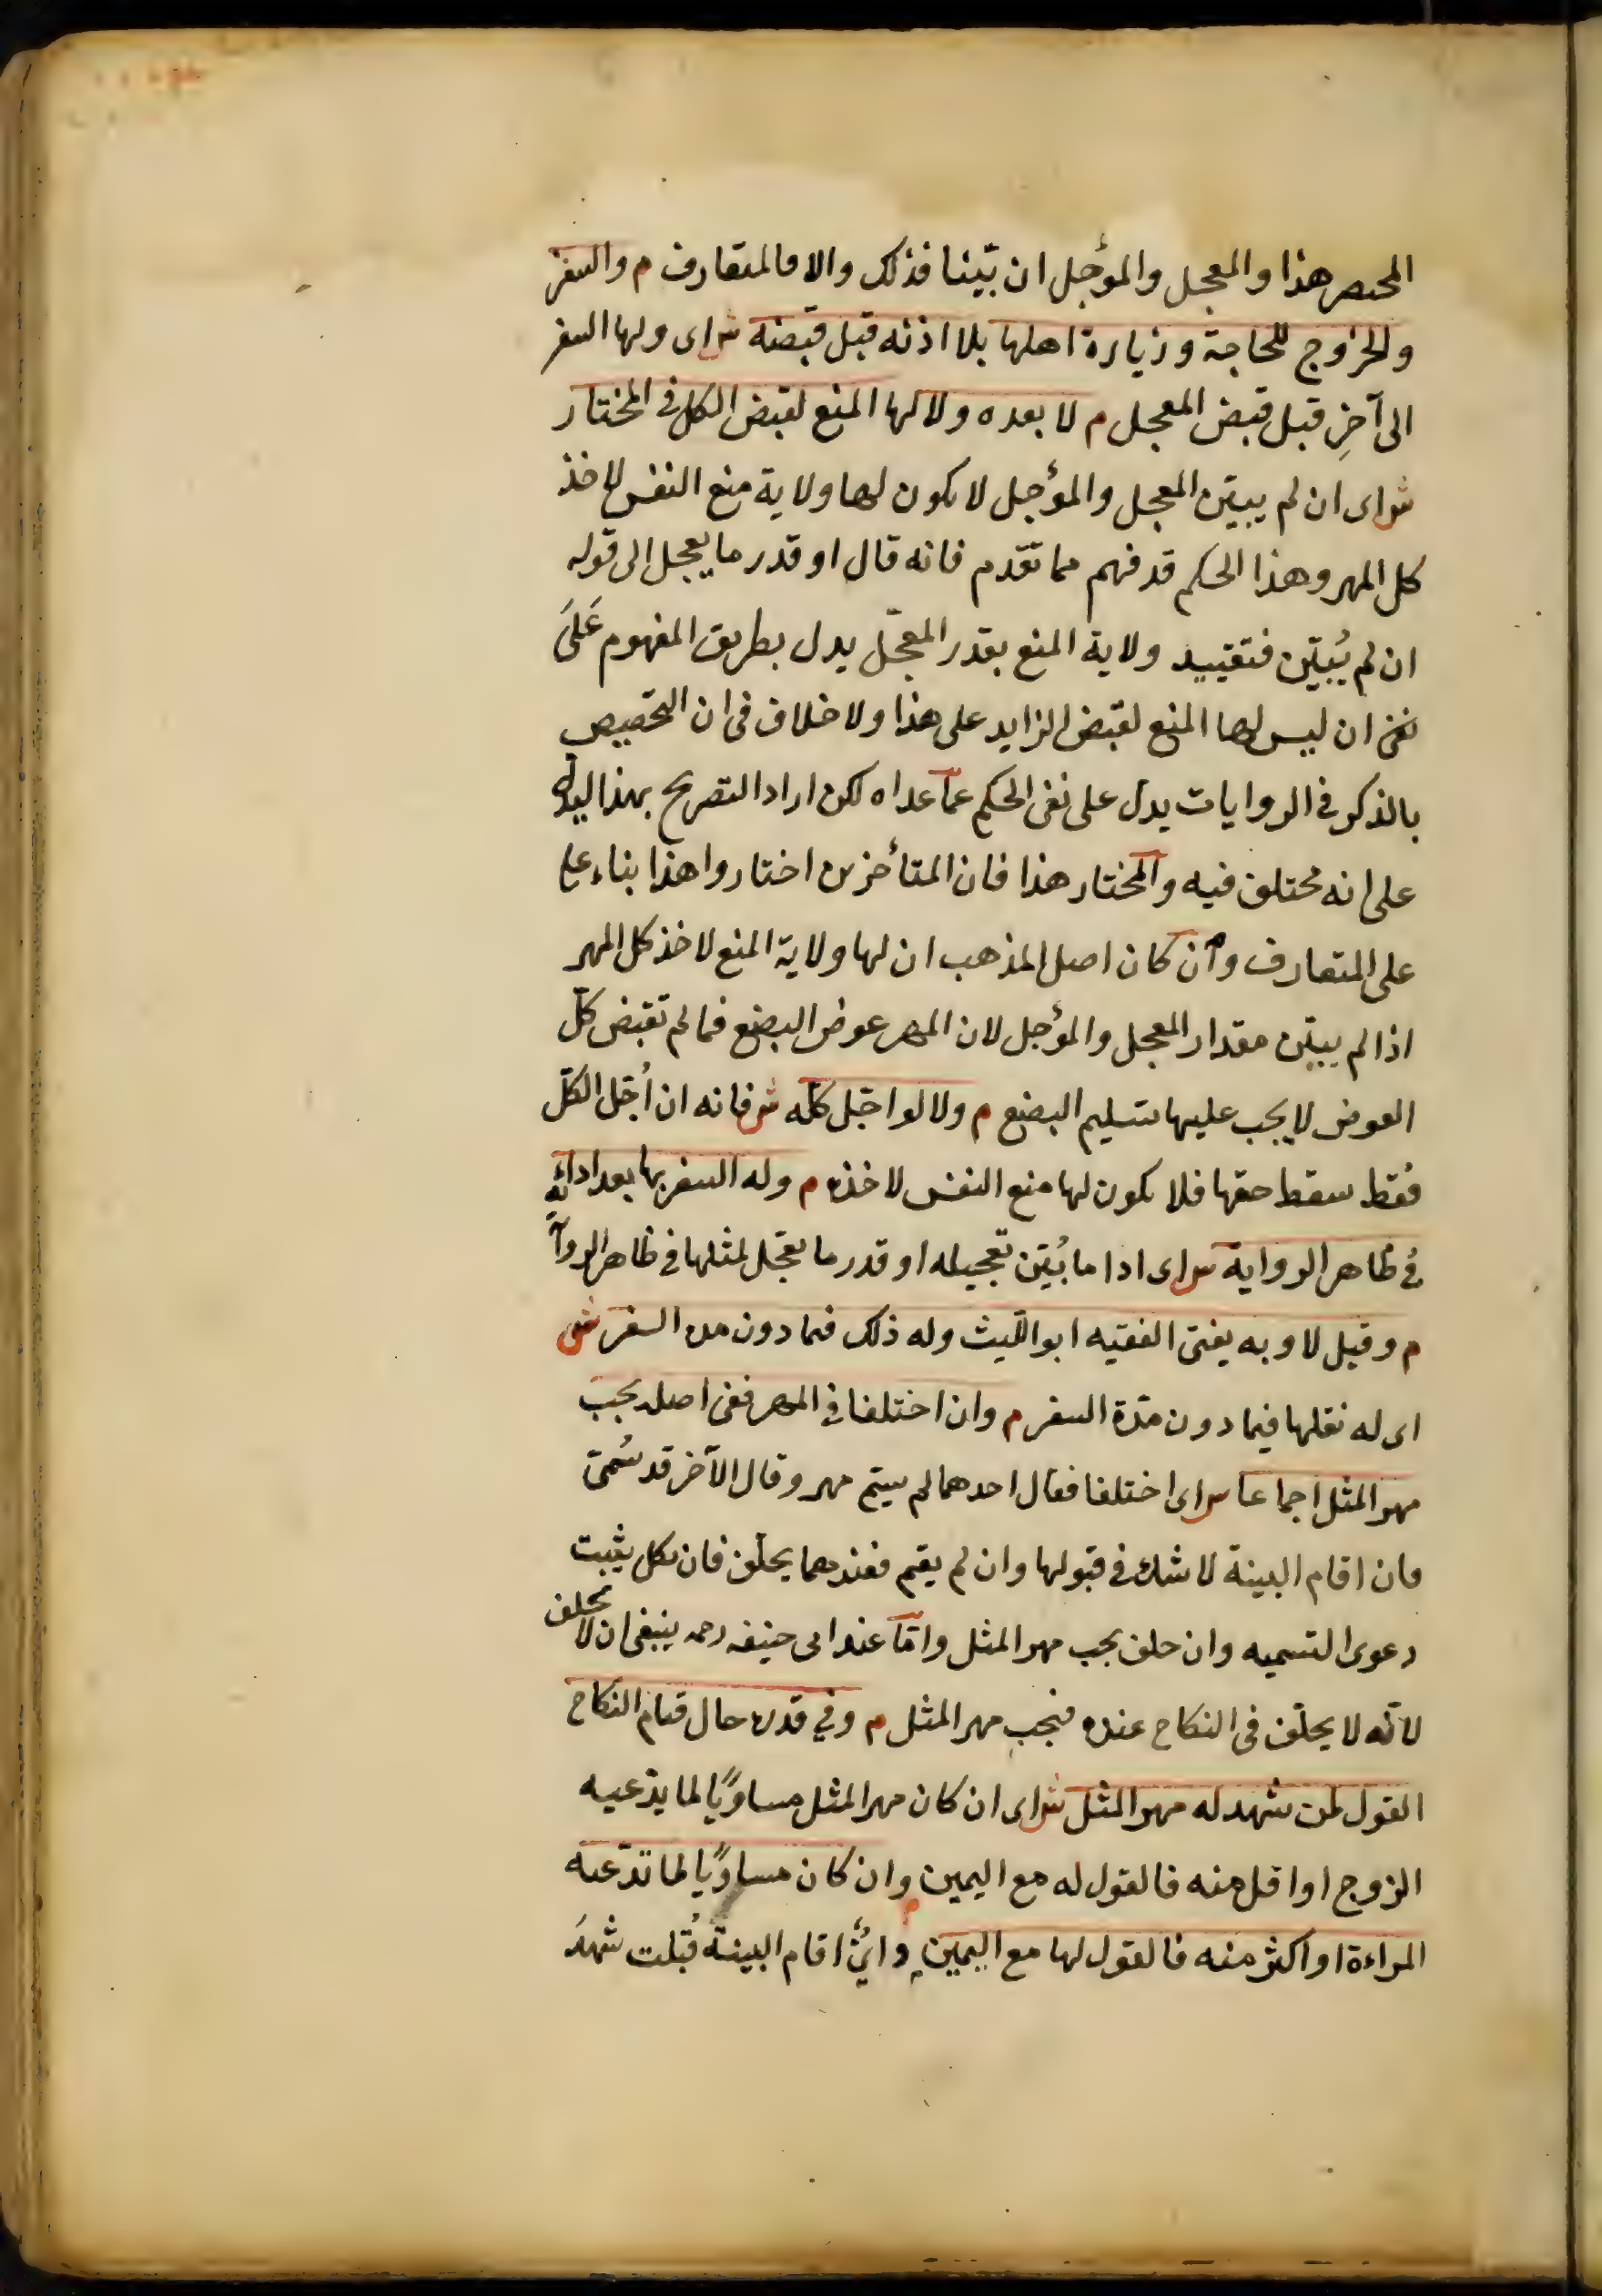 المختصر هذا والمعجل والمؤجل ان بيّنا فذلك والا فالمتعارف م والسفر
والخروج للحاجة وزيارة اهلها بلا اذنه قبل قبضه ش اى ولها السفر
الى آخرِ قبل قبض المعجل م لا بعده ولا لها المنع لقبض الكل فى المختار
ش اى ان لم يبيّن المعجل والمؤجل لا يكون لها ولاية منع النفس لاخذ
كل المهر وهذا الحكم قد فهم مما تقدم فانه قال او قدر ما يعجل الى قوله
ان لم يُبيّن فتقييد ولاية المنع بقدر المعجّل يدل بطريق المفهوم عَلىَ
نفى ان ليس لها المنع لقبض الزايد على هذا ولا خلاف فى ان التخصيص
بالذكر فى الروايات يدل على نفى الحكم عمّا عداه لكن اراد التصريح بهذا ليدل
على انه مختلف فيه والمختار هذا فان المتأخرين اختاروا هذا بناء على
على المتعارف وان كان اصل المذهب ان لها ولاية المنع لاخذ كل المهر
اذا لم يبيّن مقدار المعجل والمؤجل لان المهر عوض البضع فما لم تقبض كلّ
العوض لا يجب عليها تسليم البضع م ولا لو اجّل كلّه ش فانه ان اُجّل الكلّ
فقط سقط حقها فلا يكون لها منع النفس لاخذه م وله السفر بها بعد ادائه
فى ظاهر الرواية ش اى اداء ما بُيّن تعجيله او قدر ما يعجّل لمثلها فى ظاهر الروآ
م وقيل لا وبه يفتى الفقيه ابو اللّيث وله ذلك فيما دون مدة السفر ش
اى له نقلها فيما دون مدّة السفر م وان اختلفا فى المهر ففى اصله يجب
مهر المثل اجماعا ش اى اختلفا فقال احدهما لم يسمّ مهر وقال الآخر قد سُمّى
فان اقام البينة لا شك فى قبولها وان لم يقم فعندهما يحلّف فان نكل يثبت
دعوى التسميه وان حلف يجب مهر المثل وامّا عند ابى حنيفه رحمه ينبغى ان لا يحلف
لانّه لا يحلّف فى النكاح عنده فيجب مهر المثل م وفي قدره حال قيام النكاح
القول لمن شهد له مهر المثل ش اى ان كان مهر المثل مساويًا لما يدّعيه
الزوج او اقل منه فالقول له مع اليمين وان كان مساويًا لما تدّعيه
المراءة او اكثر منه فالقول لها مع اليمين م واىٌّ اقام البينة قُبلت شهدَ